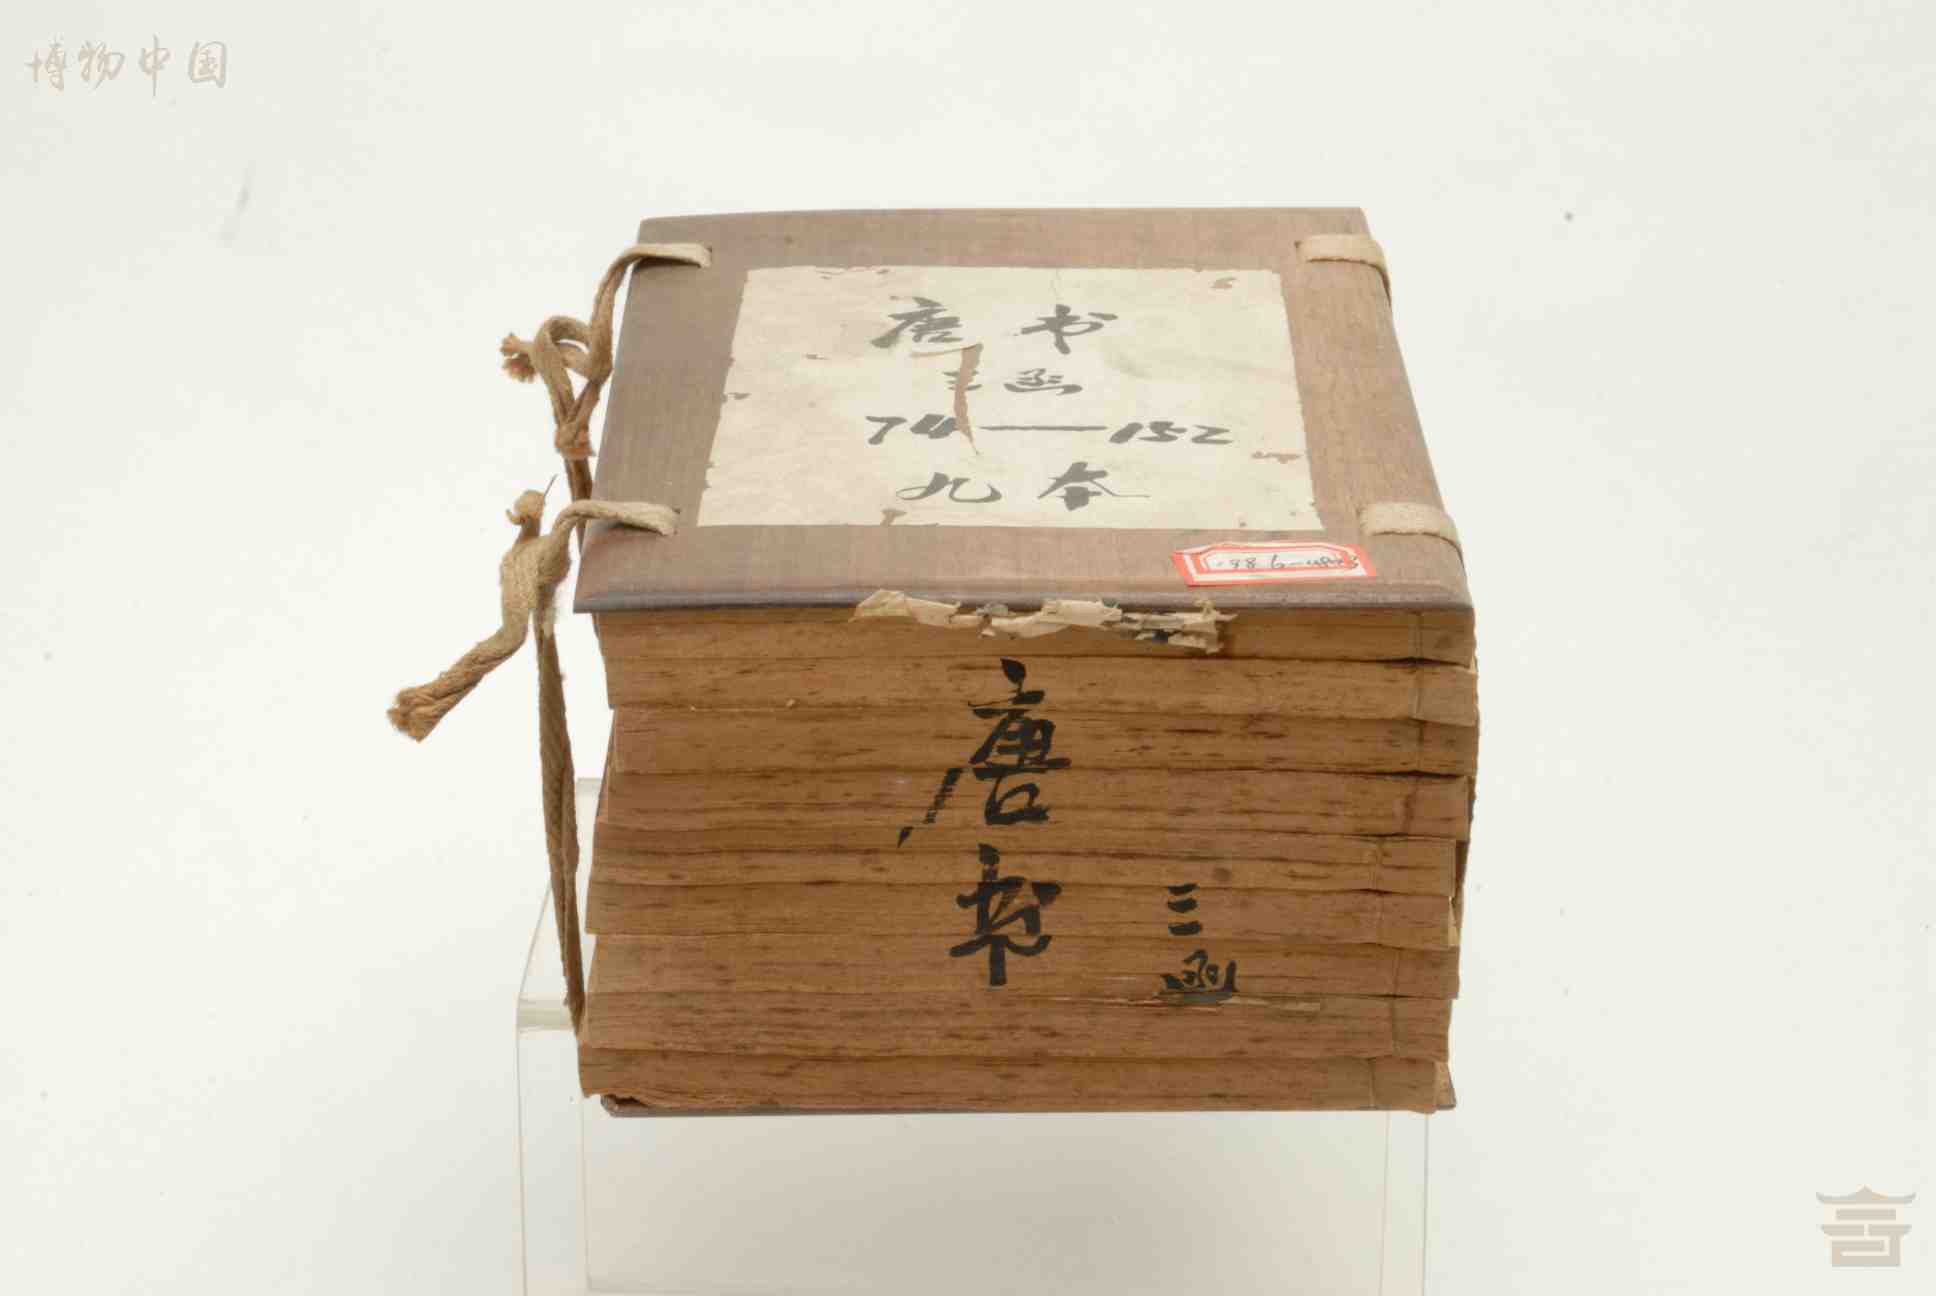 博物中国
唐书
三函
74—152
九本
唐书
三函